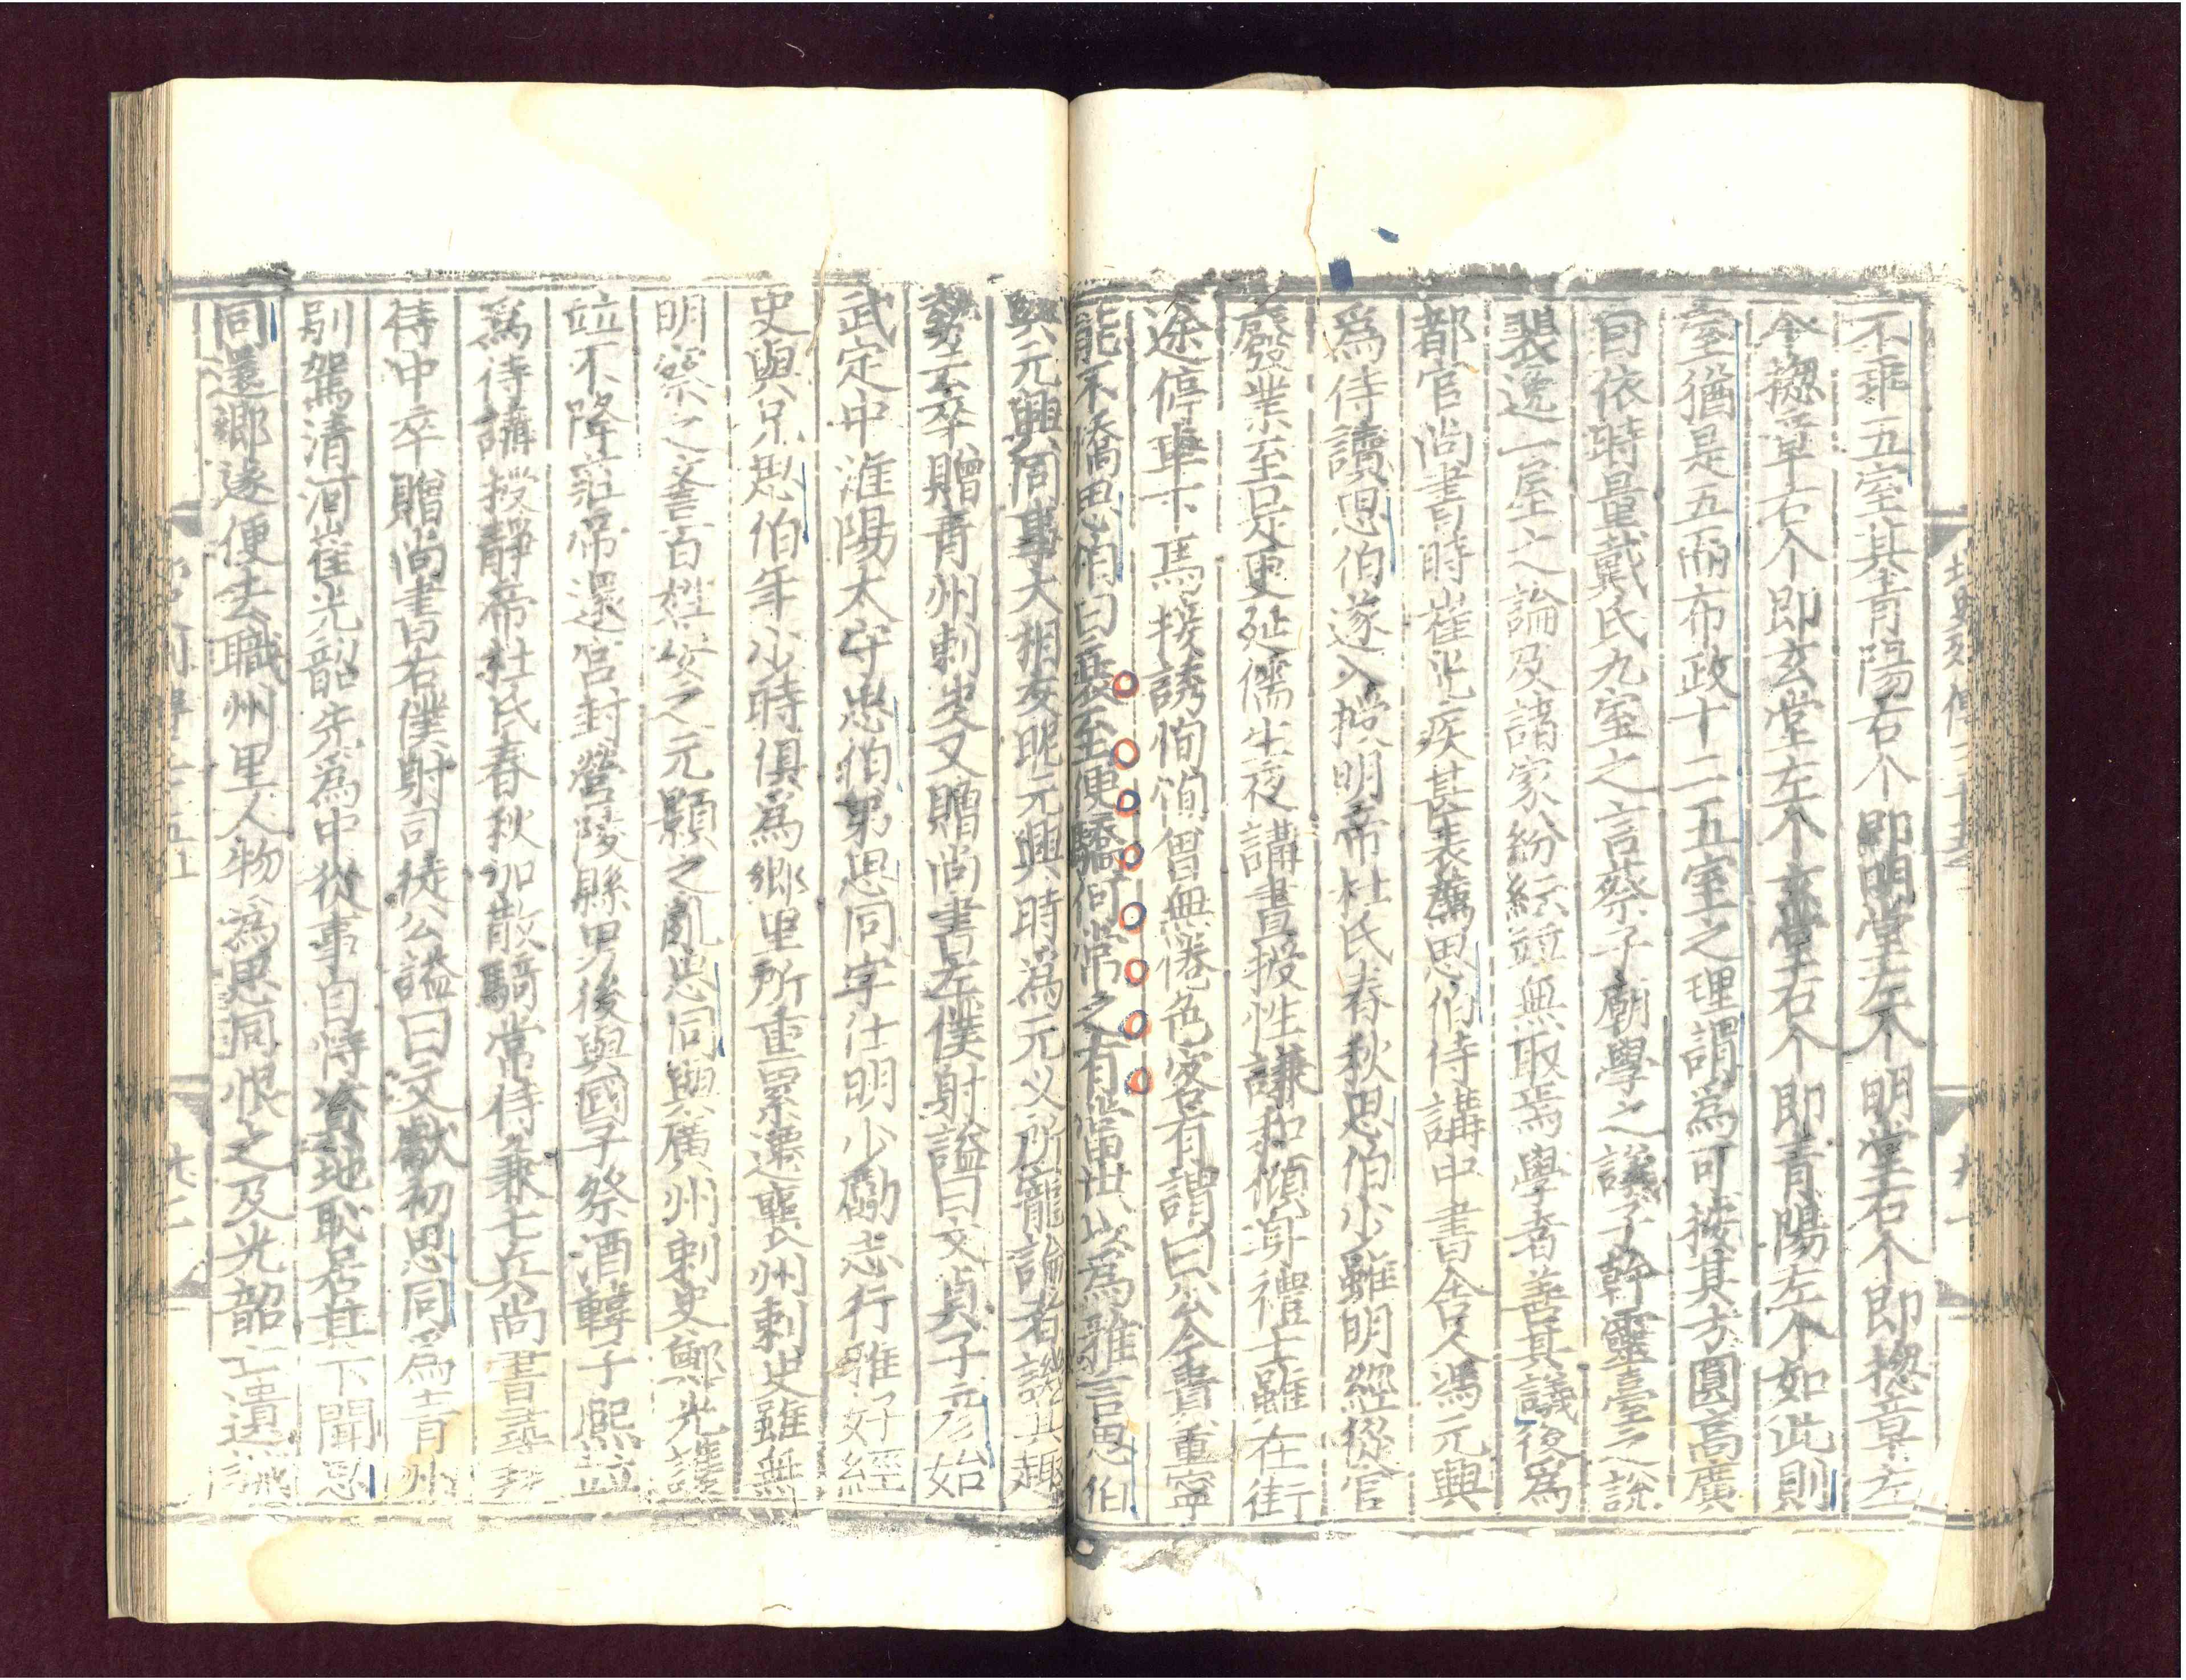 不乖五室其青陽右个即明堂左个明堂右个即揔章左
个揔章右个即玄堂左个玄堂右个即青陽左个如此則
室猶是五而布政十二五室之理謂為可按其方圓高廣
自依時量戴氏九室之言蔡子廟學之議子幹靈臺之說
裴逸一屋之論及諸家紛紜並無取焉學者善其議後為
都官尚書時崔光疾甚表薦思伯侍講中書舍人馮元興
為侍讀思伯遂入授明帝杜氏春秋思伯少雖明經從官
廢業至是更延儒生夜講晝授性謙和傾身禮士雖在街
途停車下馬接誘恂恂曾無倦色客有謂曰公今貴重寧
能不憍思伯曰衰至便驕何常之有當世以為雅言思伯
與元興同事大相友昵元興時為元义所寵論者譏其趣
勢云卒贈青州刺史又贈尚書左僕射謚曰文貞子彥始
武定中淮陽太守思伯弟思同字仕明少勵志行雅好經
史與兄思伯年少時俱為鄉里所重累遷襄州刺史雖無
明察之譽百姓安之元顥之亂思同與廣州刺史鄭光護
並不降莊帝還宮封營陵縣男後與國子祭酒韓子熙並
為侍講授靜帝杜氏春秋加散騎常侍兼七兵尚書尋拜
侍中卒贈尚書右僕射司徒公謚曰文獻初思同為青州
別駕清河崔光韶先為中從事自恃資地恥居其下聞思
同還鄉遂便去職州里人物為思同恨之及光韶亡遺誡
北史列傳三十五
九十一